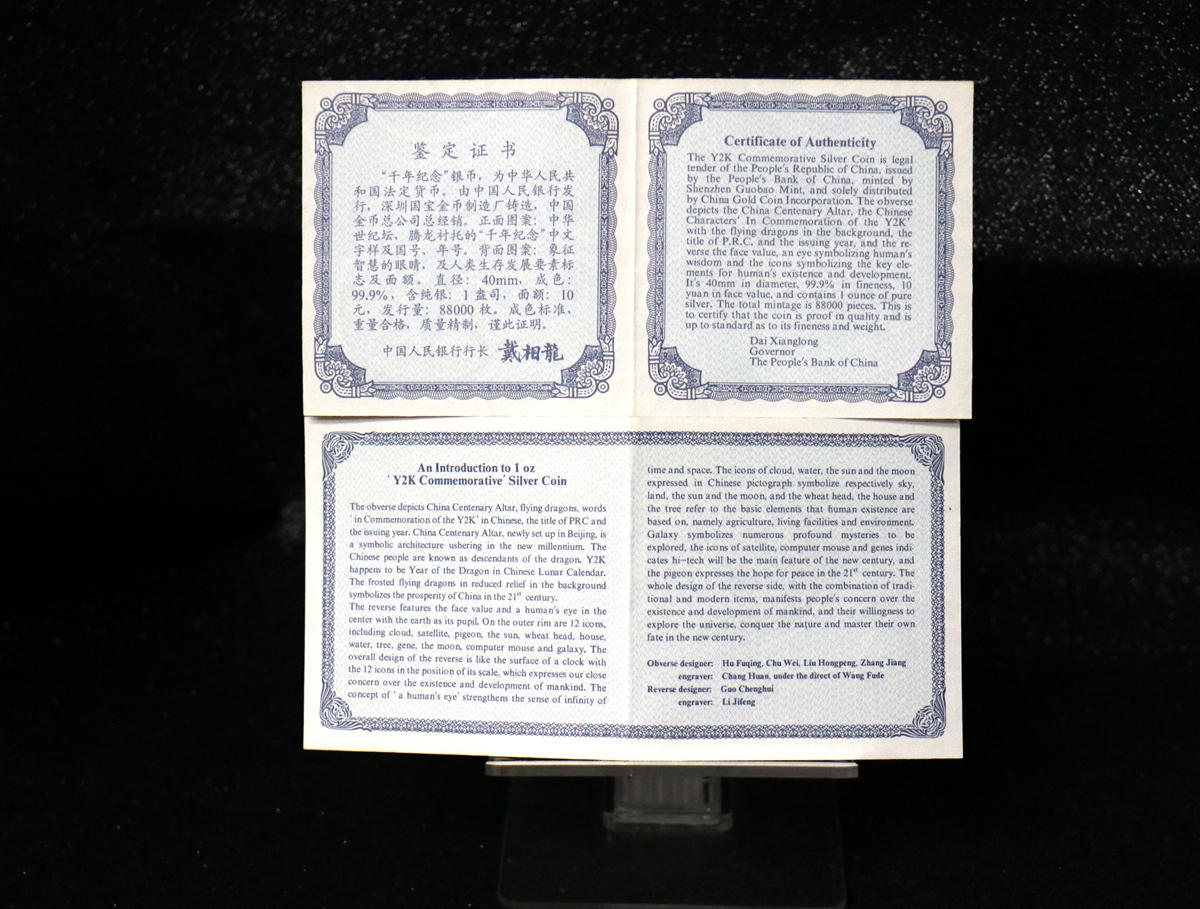 鉴定证书
“千年纪念”银币，为中华人民共
和国法定货币。由中国人民银行发
行，深圳国宝金币制造厂铸造，中国
金币总公司总经销。正面图案：中华
世纪坛，腾龙衬托的“千年纪念”中文
字样及国号、年号。背面图案：象征
智慧的眼睛，及人类生存发展要素标
志及面额。直径：40mm，成色：
99.9%，含纯银：1 盎司，面额：10
元，发行量：88000 枚。成色标准，
重量合格，质量精制，谨此证明。
中国人民银行行长 戴相龍
Certificate of Authenticity
The Y2K Commemorative Silver Coin is legal
tender of the People's Republic of China, issued
by the People's Bank of China, minted by
Shenzhen Guobao Mint, and solely distributed
by China Gold Coin Incorporation. The obverse
depicts the China Centenary Altar, the Chinese
Characters' In Commemoration of the Y2K'
with the flying dragons in the background, the
title of P.R.C. and the issuing year, and the re-
verse the face value, an eye symbolizing human's
wisdom and the icons symbolizing the key ele-
ments for human's existence and development.
It's 40mm in diameter, 99.9% in fineness, 10
yuan in face value, and contains 1 ounce of pure
silver. The total mintage is 88000 pieces. This is
to certify that the coin is proof in quality and is
up to standard as to its fineness and weight.
Dai Xianglong
Governor
The People's Bank of China
An Introduction to 1 oz
'Y2K Commemorative' Silver Coin
The obverse depicts China Centenary Altar, flying dragons, words
'in Commemoration of the Y2K' in Chinese, the title of PRC and
the issuing year. China Centenary Altar, newly set up in Beijing, is
a symbolic architecture ushering in the new millennium. The
Chinese people are known as descendants of the dragon. Y2K
happens to be Year of the Dragon in Chinese Lunar Calendar.
The frosted flying dragons in reduced relief in the background
symbolizes the prosperity of China in the 21st century.
The reverse features the face value and a human's eye in the
center with the earth as its pupil. On the outer rim are 12 icons,
including cloud, satellite, pigeon, the sun, wheat head, house,
water, tree, gene, the moon, computer mouse and galaxy. The
overall design of the reverse is like the surface of a clock with
the 12 icons in the position of its scale, which expresses our close
concern over the existence and development of mankind. The
concept of 'a human's eye' strengthens the sense of infinity of
time and space. The icons of cloud, water, the sun and the moon
expressed in Chinese pictograph symbolize respectively sky,
land, the sun and the moon, and the wheat head, the house and
the tree refer to the basic elements that human existence are
based on, namely agriculture, living facilities and environment.
Galaxy symbolizes numerous profound mysteries to be
explored, the icons of satellite, computer mouse and genes indi-
cates hi-tech will be the main feature of the new century, and
the pigeon expresses the hope for peace in the 21st century. The
whole design of the reverse side, with the combination of tradi-
tional and modern items, manifests people's concern over the
existence and development of mankind, and their willingness to
explore the universe, conquer the nature and master their own
fate in the new century.
Obverse designer: Hu Fuqing, Chu Wei, Liu Hongpeng, Zhang Jiang
engraver: Chang Huan, under the direct of Wang Fude
Reverse designer: Guo Chenghui
engraver: Li Jifeng